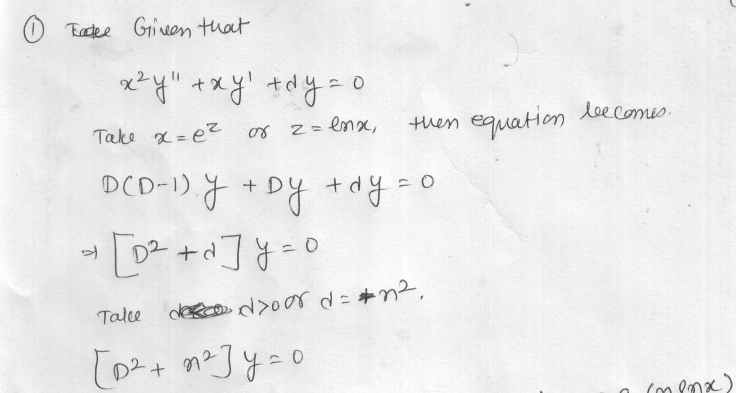 ① Given that
x²y" + xy' + dy = 0
Take x = e^z or z = lnx, then equation becomes.
D(D-1) y + Dy + dy = 0
⇒ [D² + d] y = 0
Take d>0 or d = +n².
[D² + n²] y = 0
(n lnx)